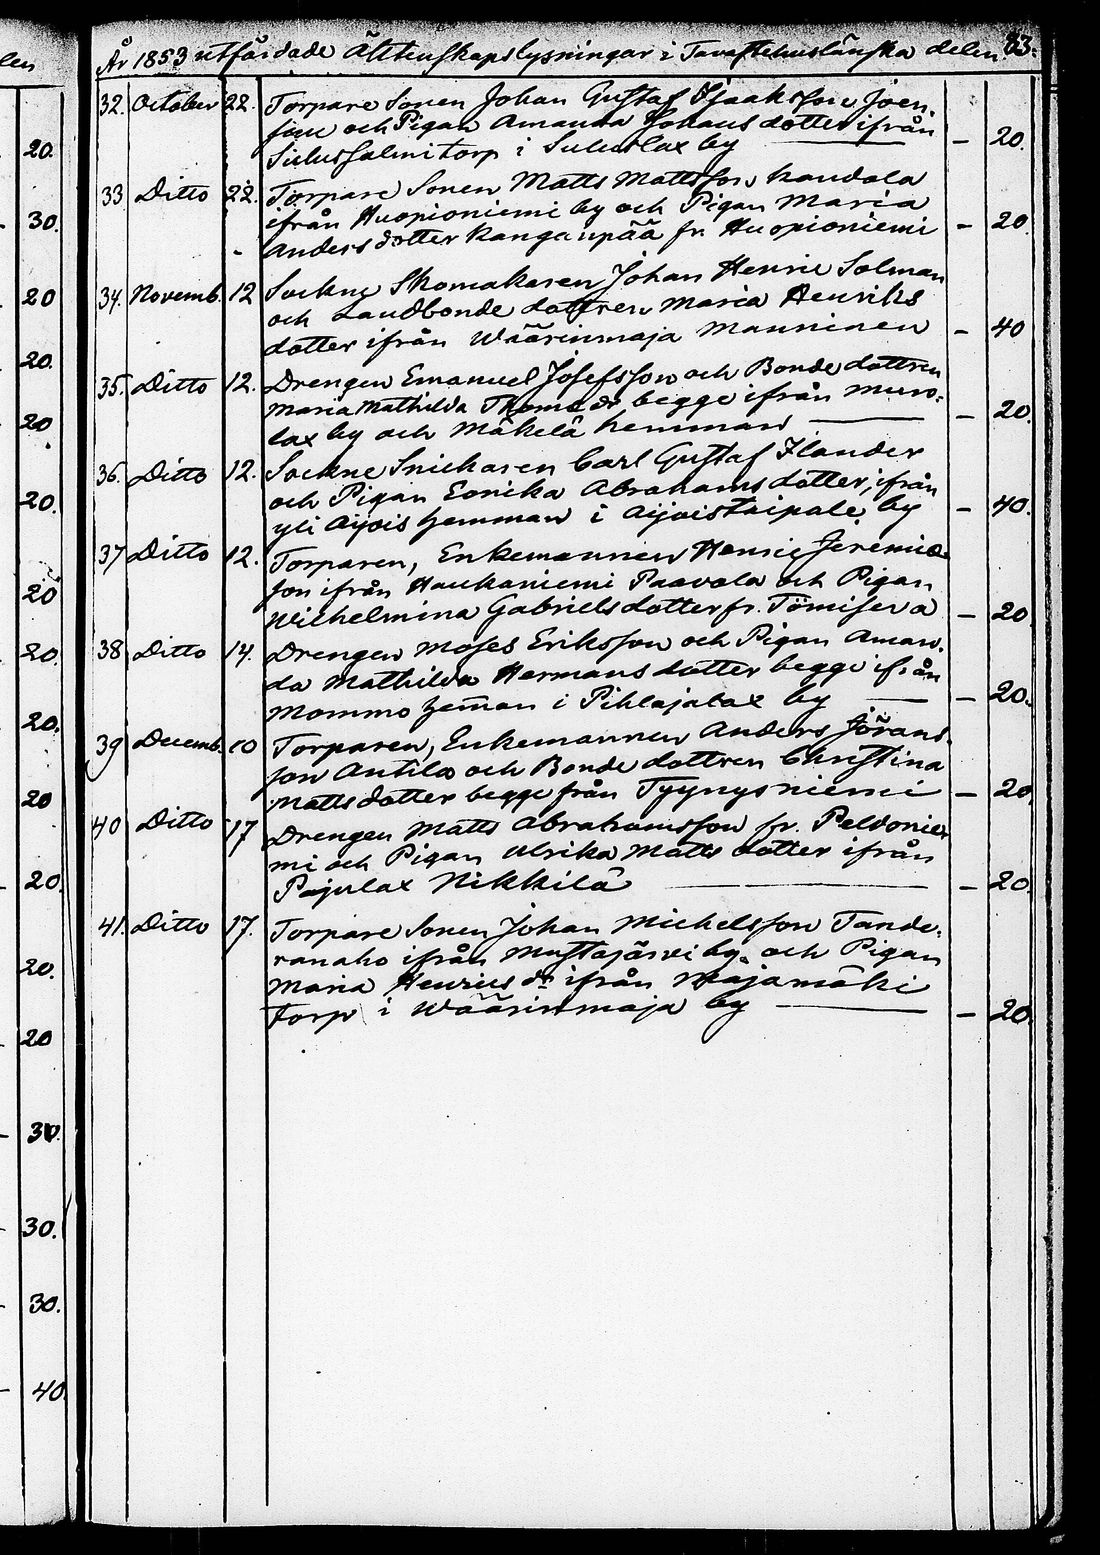 År 1853 utfärdade Äktenskapslysningar i Tavastehuslänska delen 83.
32. October 22. Torpare Sonen Johan Gustaf Isaaksson Joen-
och Pigan Amanda Johansdotter ifrån
torp i by — 20.
33 Ditto 22. Torpare Sonen Matts Mattsson handola
ifrån Huopioniemi by och Pigan Maria
Andersdotter Kangaspää fr. Huopioniemi — 20
34. Novemb. 12 Sockne Skomakaren Johan Henric Solman
och Landbonde dottren Maria Henriks
dotter ifrån Wäärinmaja Manninen — 40
35. Ditto 12. Drengen Emanuel Josefsson och Bonde dottren
Maria Mathilda Thoms dr begge ifrån Muro-
lax by och Mäkelä hemman — 20.
36. Ditto 12. Sockne Snickaren Carl Gustaf Ilander
och Pigan Eorika Abrahamsdotter, ifrån
yli Äijois hemman i Äijoistaipale by — 40.
37 Ditto 12. Torparen, Enkemannen Henric Jeremias-
son ifrån Haukaniemi Paavola och Pigan
Wilhelmina Gabrielsdotter fr. Tömiseva — 20
38 Ditto 14. Drengen Moses Eriksson och Pigan Aman-
da Mathilda Hermansdotter begge ifrån
Mommo heman i Pihlajalax by — 20.
39 Decemb. 10 Torparen, Enkemannen Anders Jörans-
son Antila och Bonde dottren Christina
Mattsdotter begge från Tyynysniemi — 20.
40 Ditto 17 Drengen Matts Abrahamsson fr. Peldonie-
mi och Pigan Ulrika Matts dotter ifrån
Pajulax Nikkilä — 20.
41. Ditto 17. Torpare Sonen Johan Michelsson Tande-
ranaho ifrån Mustajärvi by och Pigan
Maria Henrics dr ifrån Majamäki
Torp i Wäärinmaja by — 20.